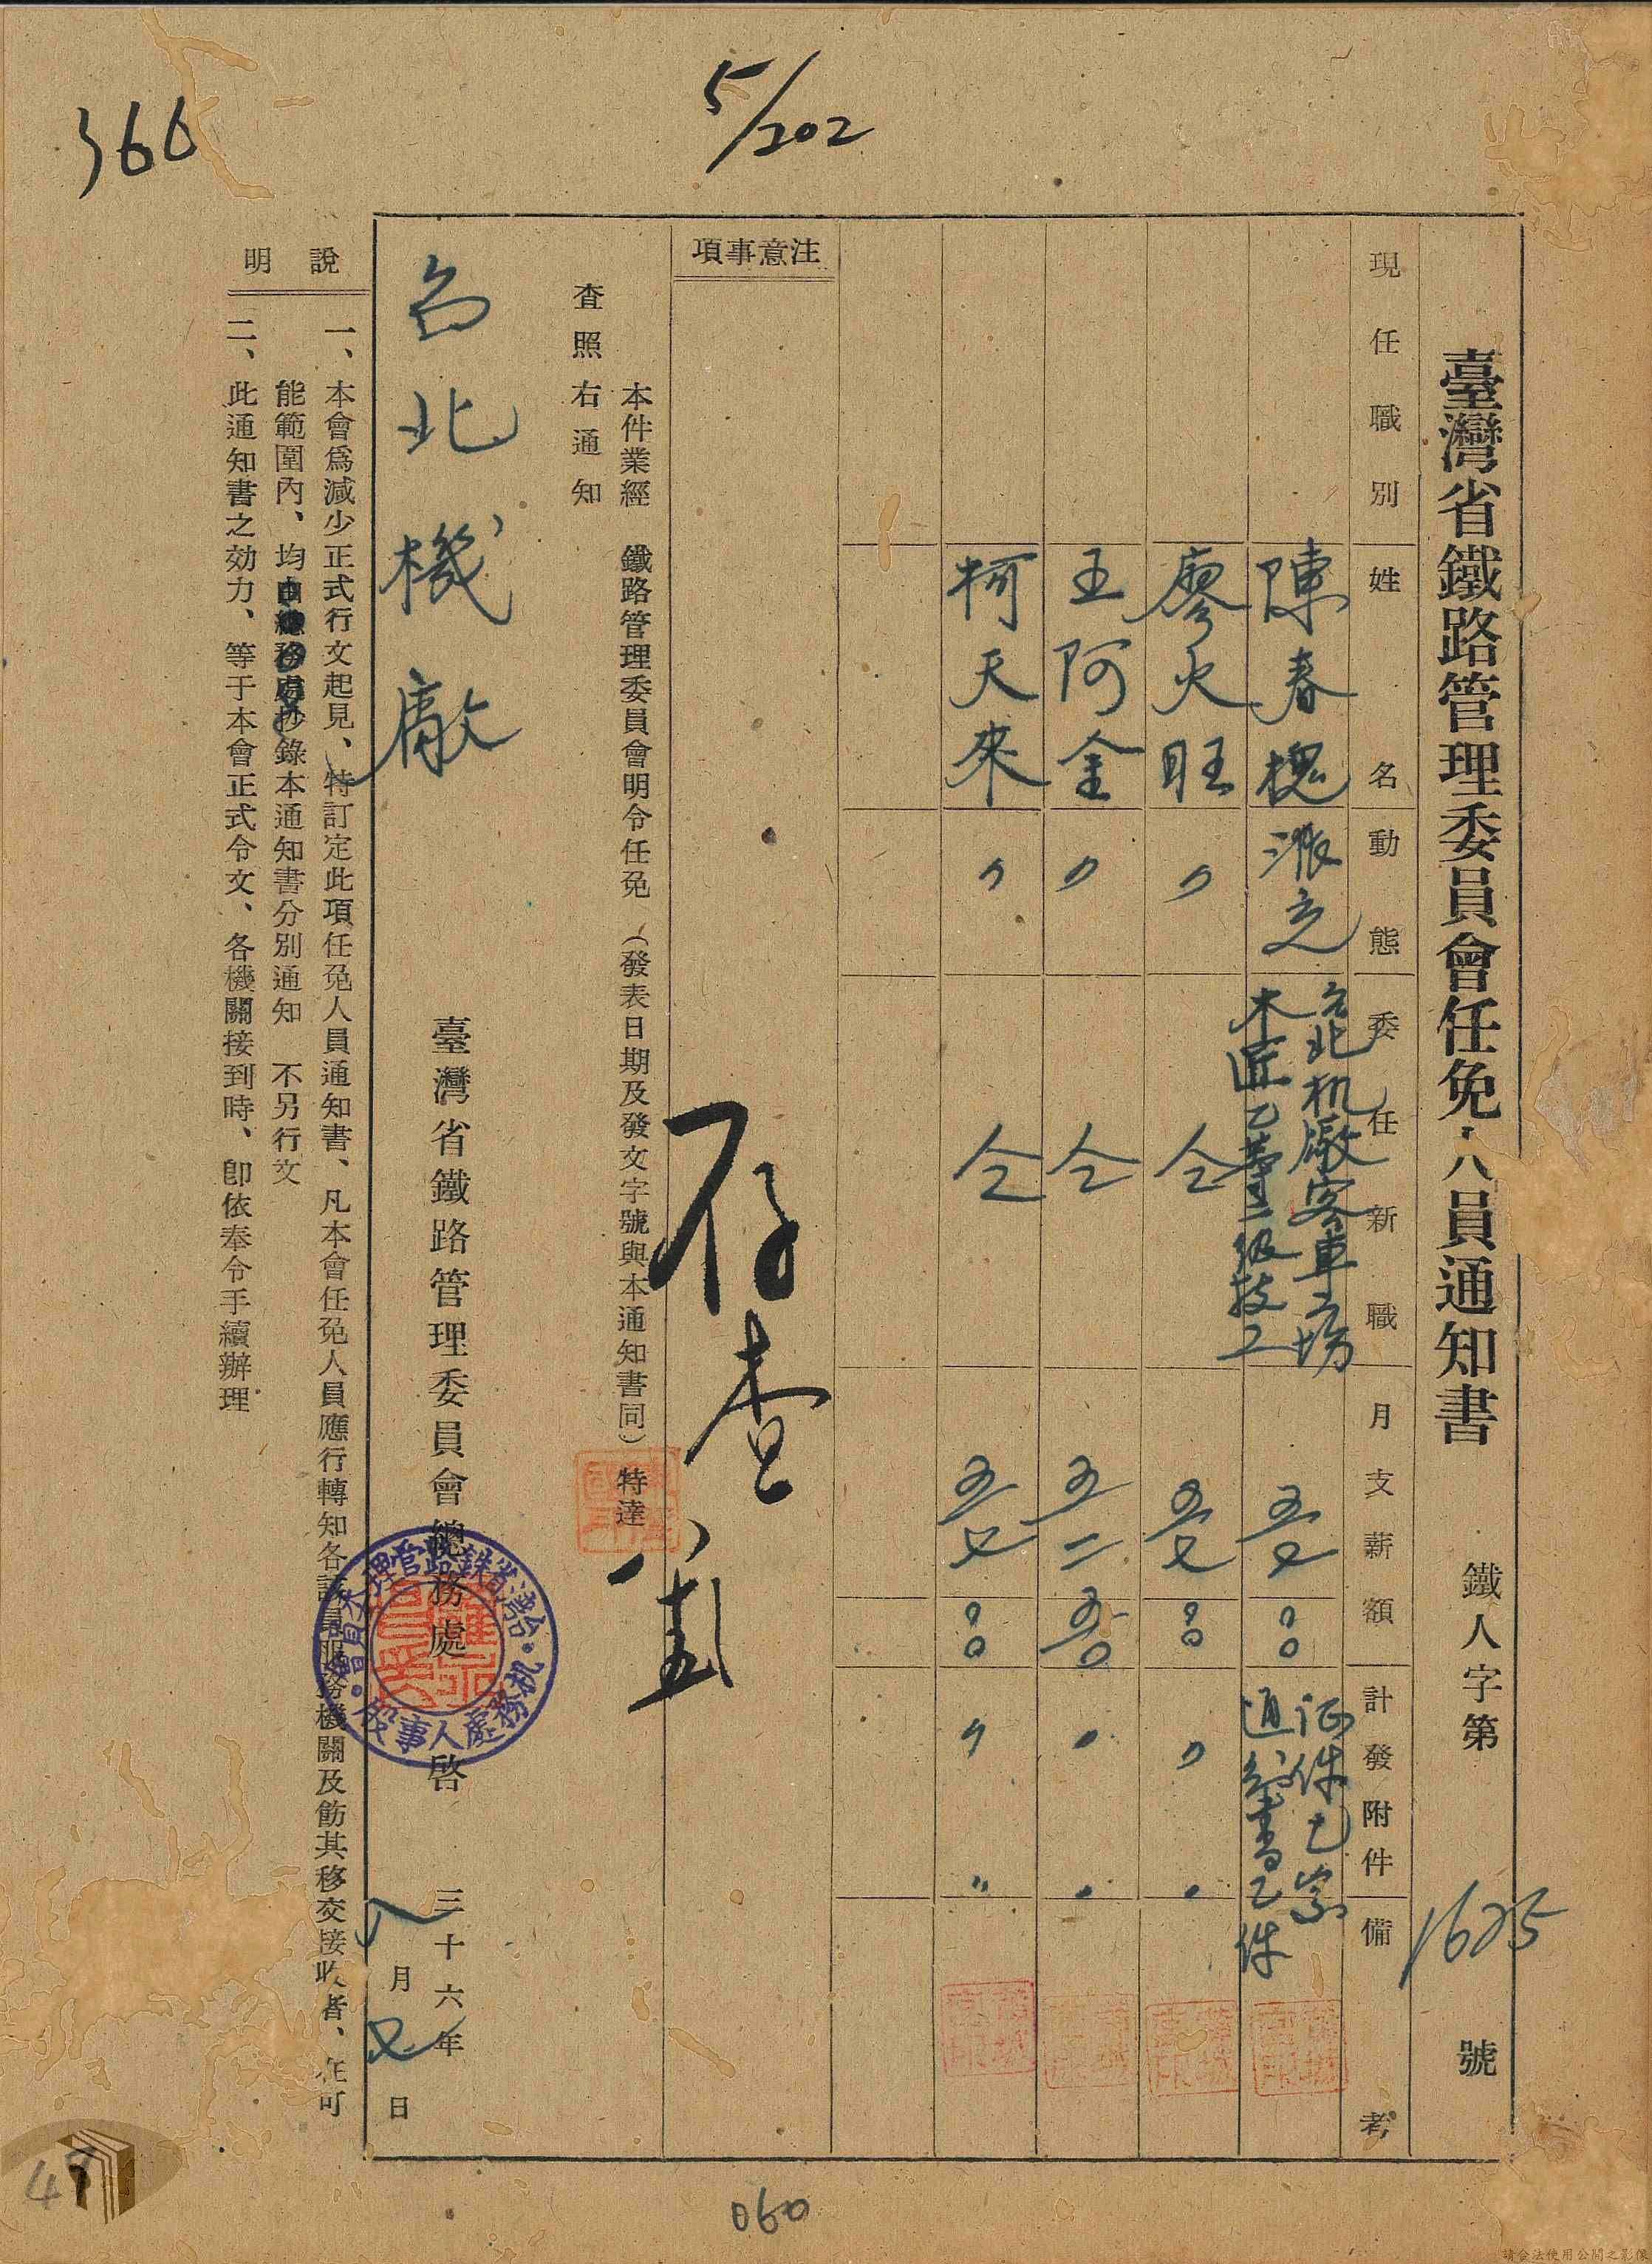 366
5/202
臺灣省鐵路管理委員會任免人員通知書
鐵人字第1625號
現任職別
姓名
動態
委任新職
月支薪額
計發附件
備考
陳春槐
派充
台北机廠客車工場
木匠乙等二級技工
証件乙宗
通知書乙件
廖火旺
〃
仝
〃
王阿金
〃
仝
柯天來
〃
仝
〃
〃
注意事項
存查
本件業經 鐵路管理委員會明令任免(發表日期及發文字號與本通知書同)特達
查照右通知
台北機廠
臺灣省鐵路管理委員會總務處啓
三十六年
八月又日
說明
一、本會爲減少正式行文起見、特訂定此項任免人員通知書、凡本會任免人員應行轉知各該員服務機關及飭其移交接收者、在可
能範圍內、均由總務處抄錄本通知書分別通知 不另行文
二、此通知書之効力、等于本會正式令文、各機關接到時、卽依奉令手續辦理
台灣省鉄路管理委員會
机務處人事股
060
請合法使用公開之影像